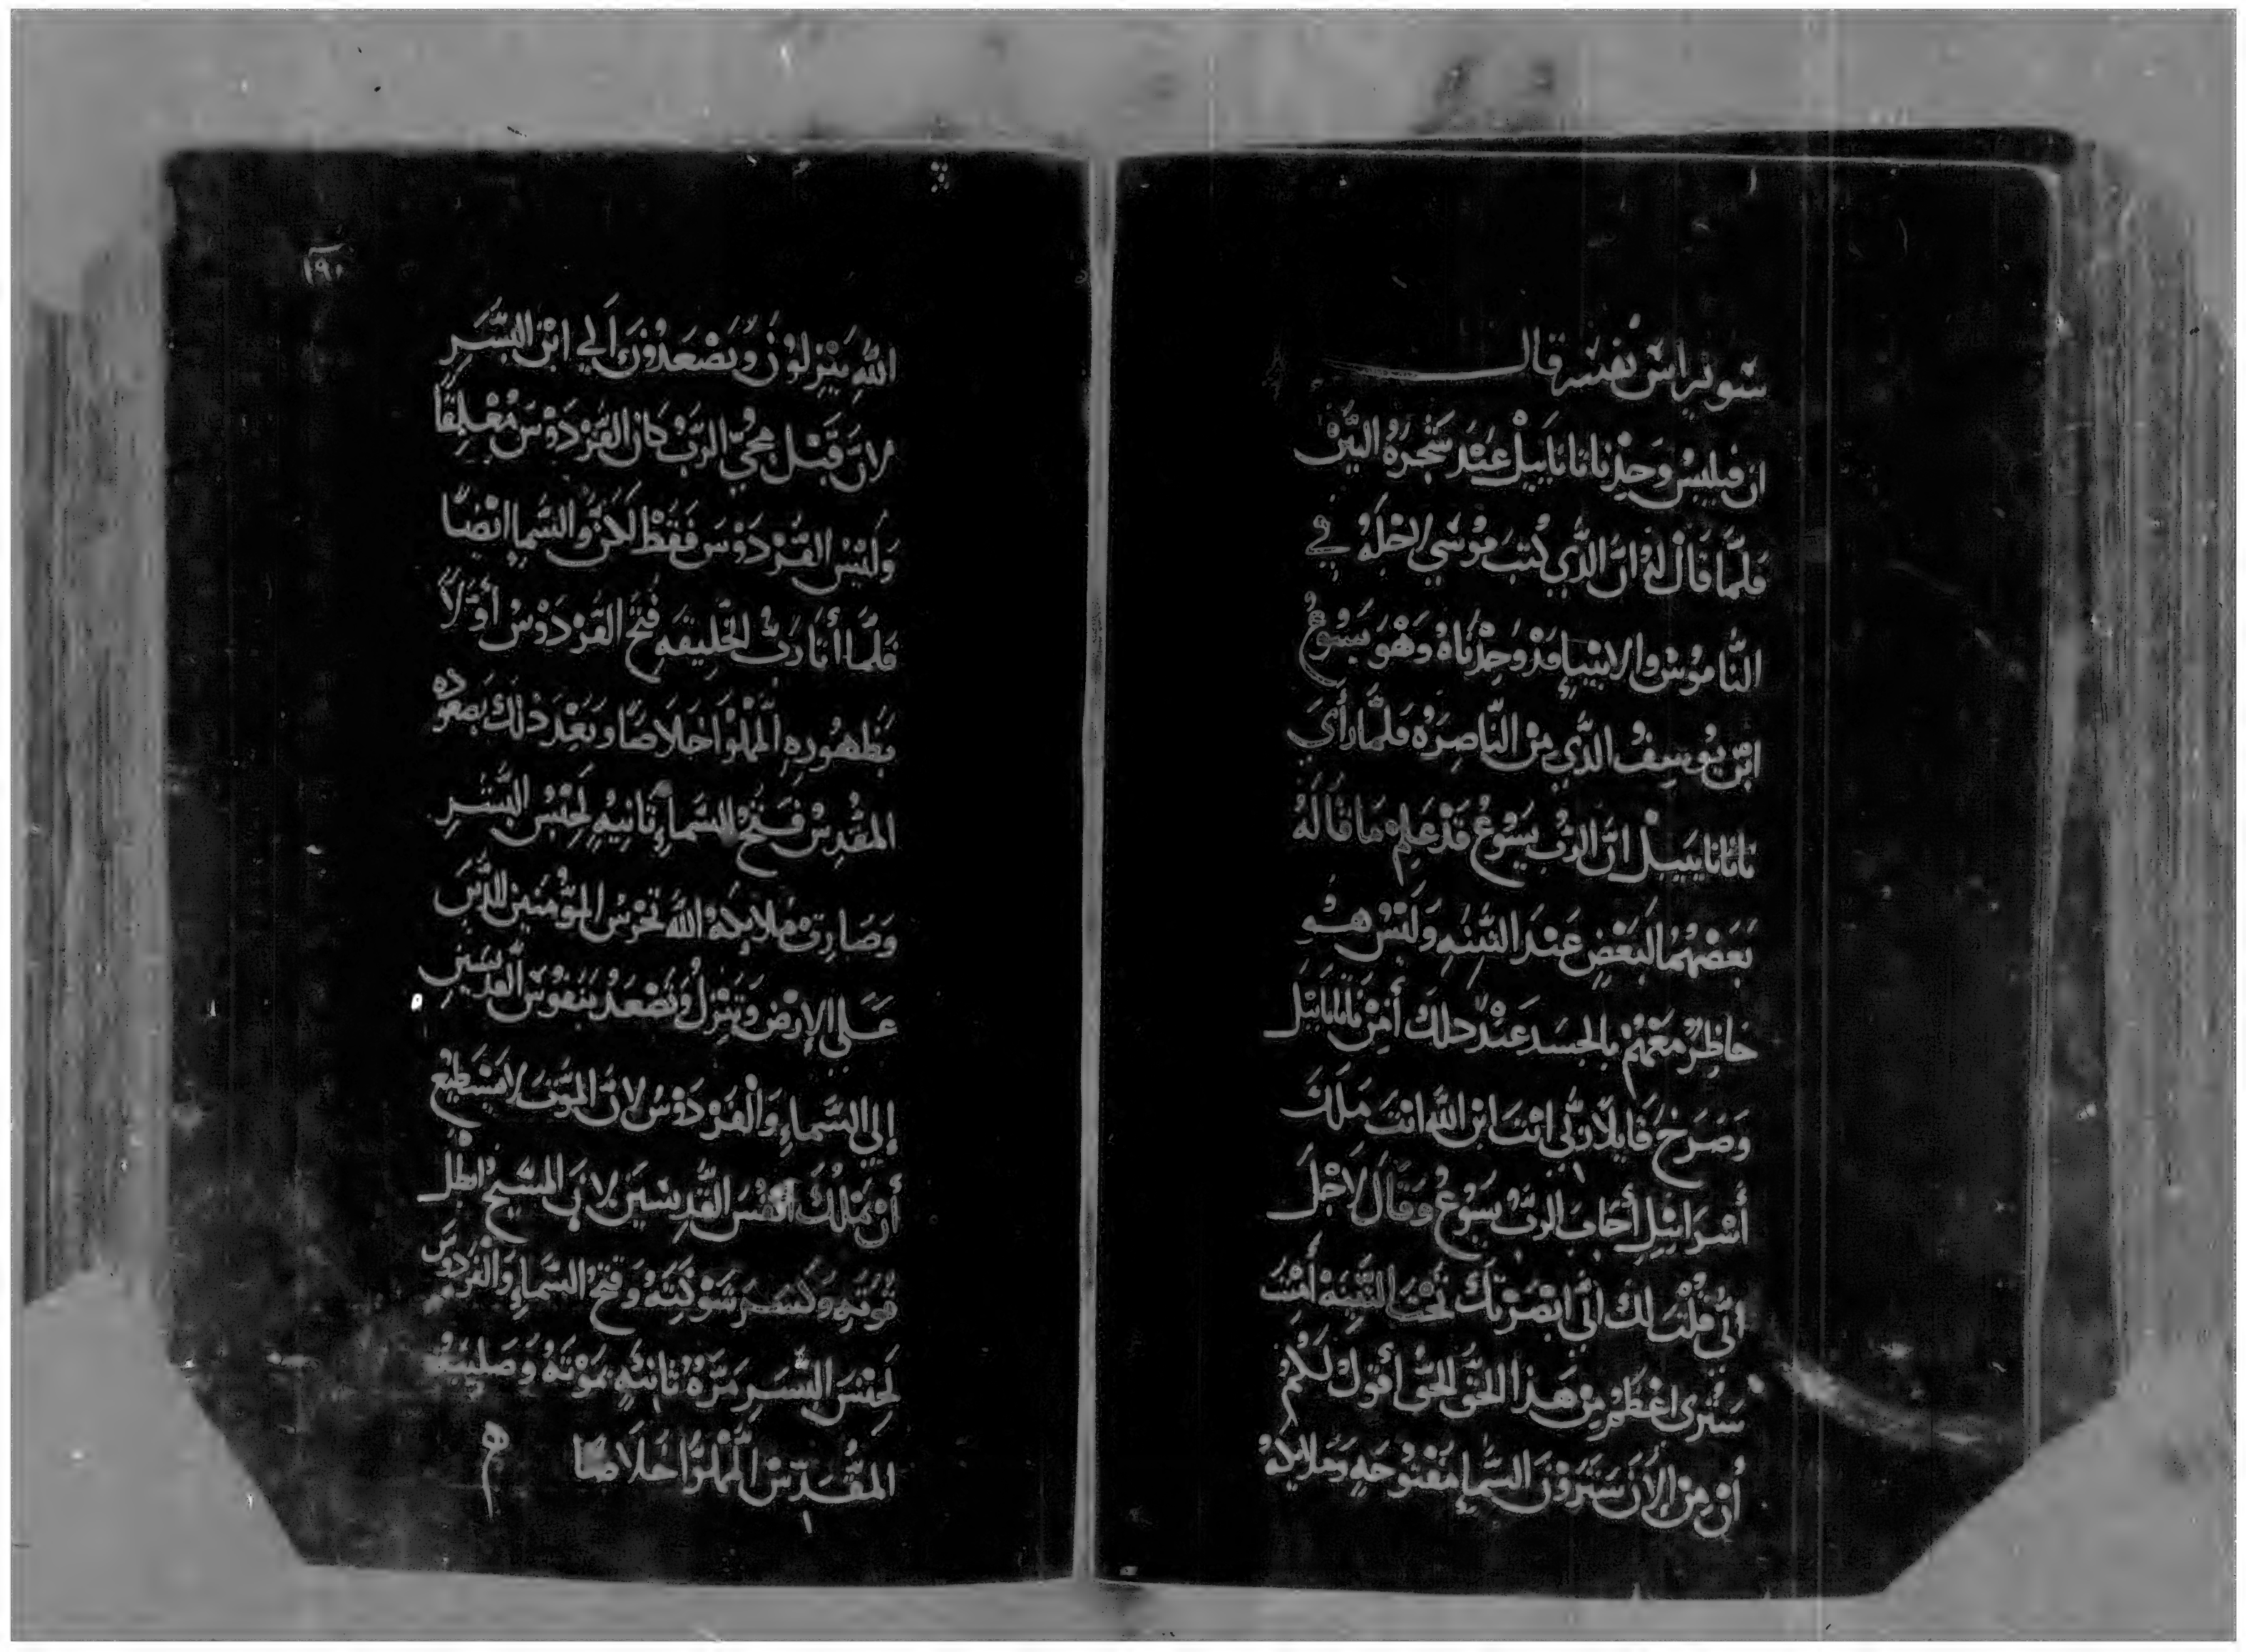 سَويراس نفسه قال
ان فيلبس وَجد ناثانَاييل عند شجرة التين
فلما قال له ان الذي كتب موسي لاجله في
الناموس والانبياء قد وجدناه وهو يسوع
ابن يوسف الذي من الناصره فلما رأي
ناثانايييل ان الرب يسوع قد علم ما قاله
بعضهما لبعض عند التينه وليس هو
حاظر معهم بالجسد عند ذلك أمن ناثانايل
وصرخ قايلا ربي انت ابن الله انت ملك
أسراييل أجاب الرب يسوع وقال لاجل
اني قلت لك اني ابصرتك تحت التينه أمنت
سترى اعظم من هذا الحق الحق أقول لكم
أن من الأن سترون السماء مفتوحه وملايكة
١٩٠
الله ينزلون ويصعدون الي ابن البشر
لان قبل مجي الرب كان الفردوس مغلقا
وليس الفردوس فقط لاكن والسماء ايضا
فلما أتا رب الخليقه فتح الفردوس أولا
بظهوره المملوا خلاصا وبعد ذلك بصعوده
المقدس فتح السماء ثانيه لجنس البشر
وصارت ملايكة الله تحرس المؤمنين الذين
علي الارض وتنزل وتصعد بنفوس القديسين
إلي السماء والفردوس لان الموت لا يستطيع
أن يملك أنفس القديسين لان المسيح ابطل
قوته وكسر شوكته وفتح السماء والفردوس
لجنس البشر مرة ثانيه بموته وصليبه
المقدس المملوا خلاصا